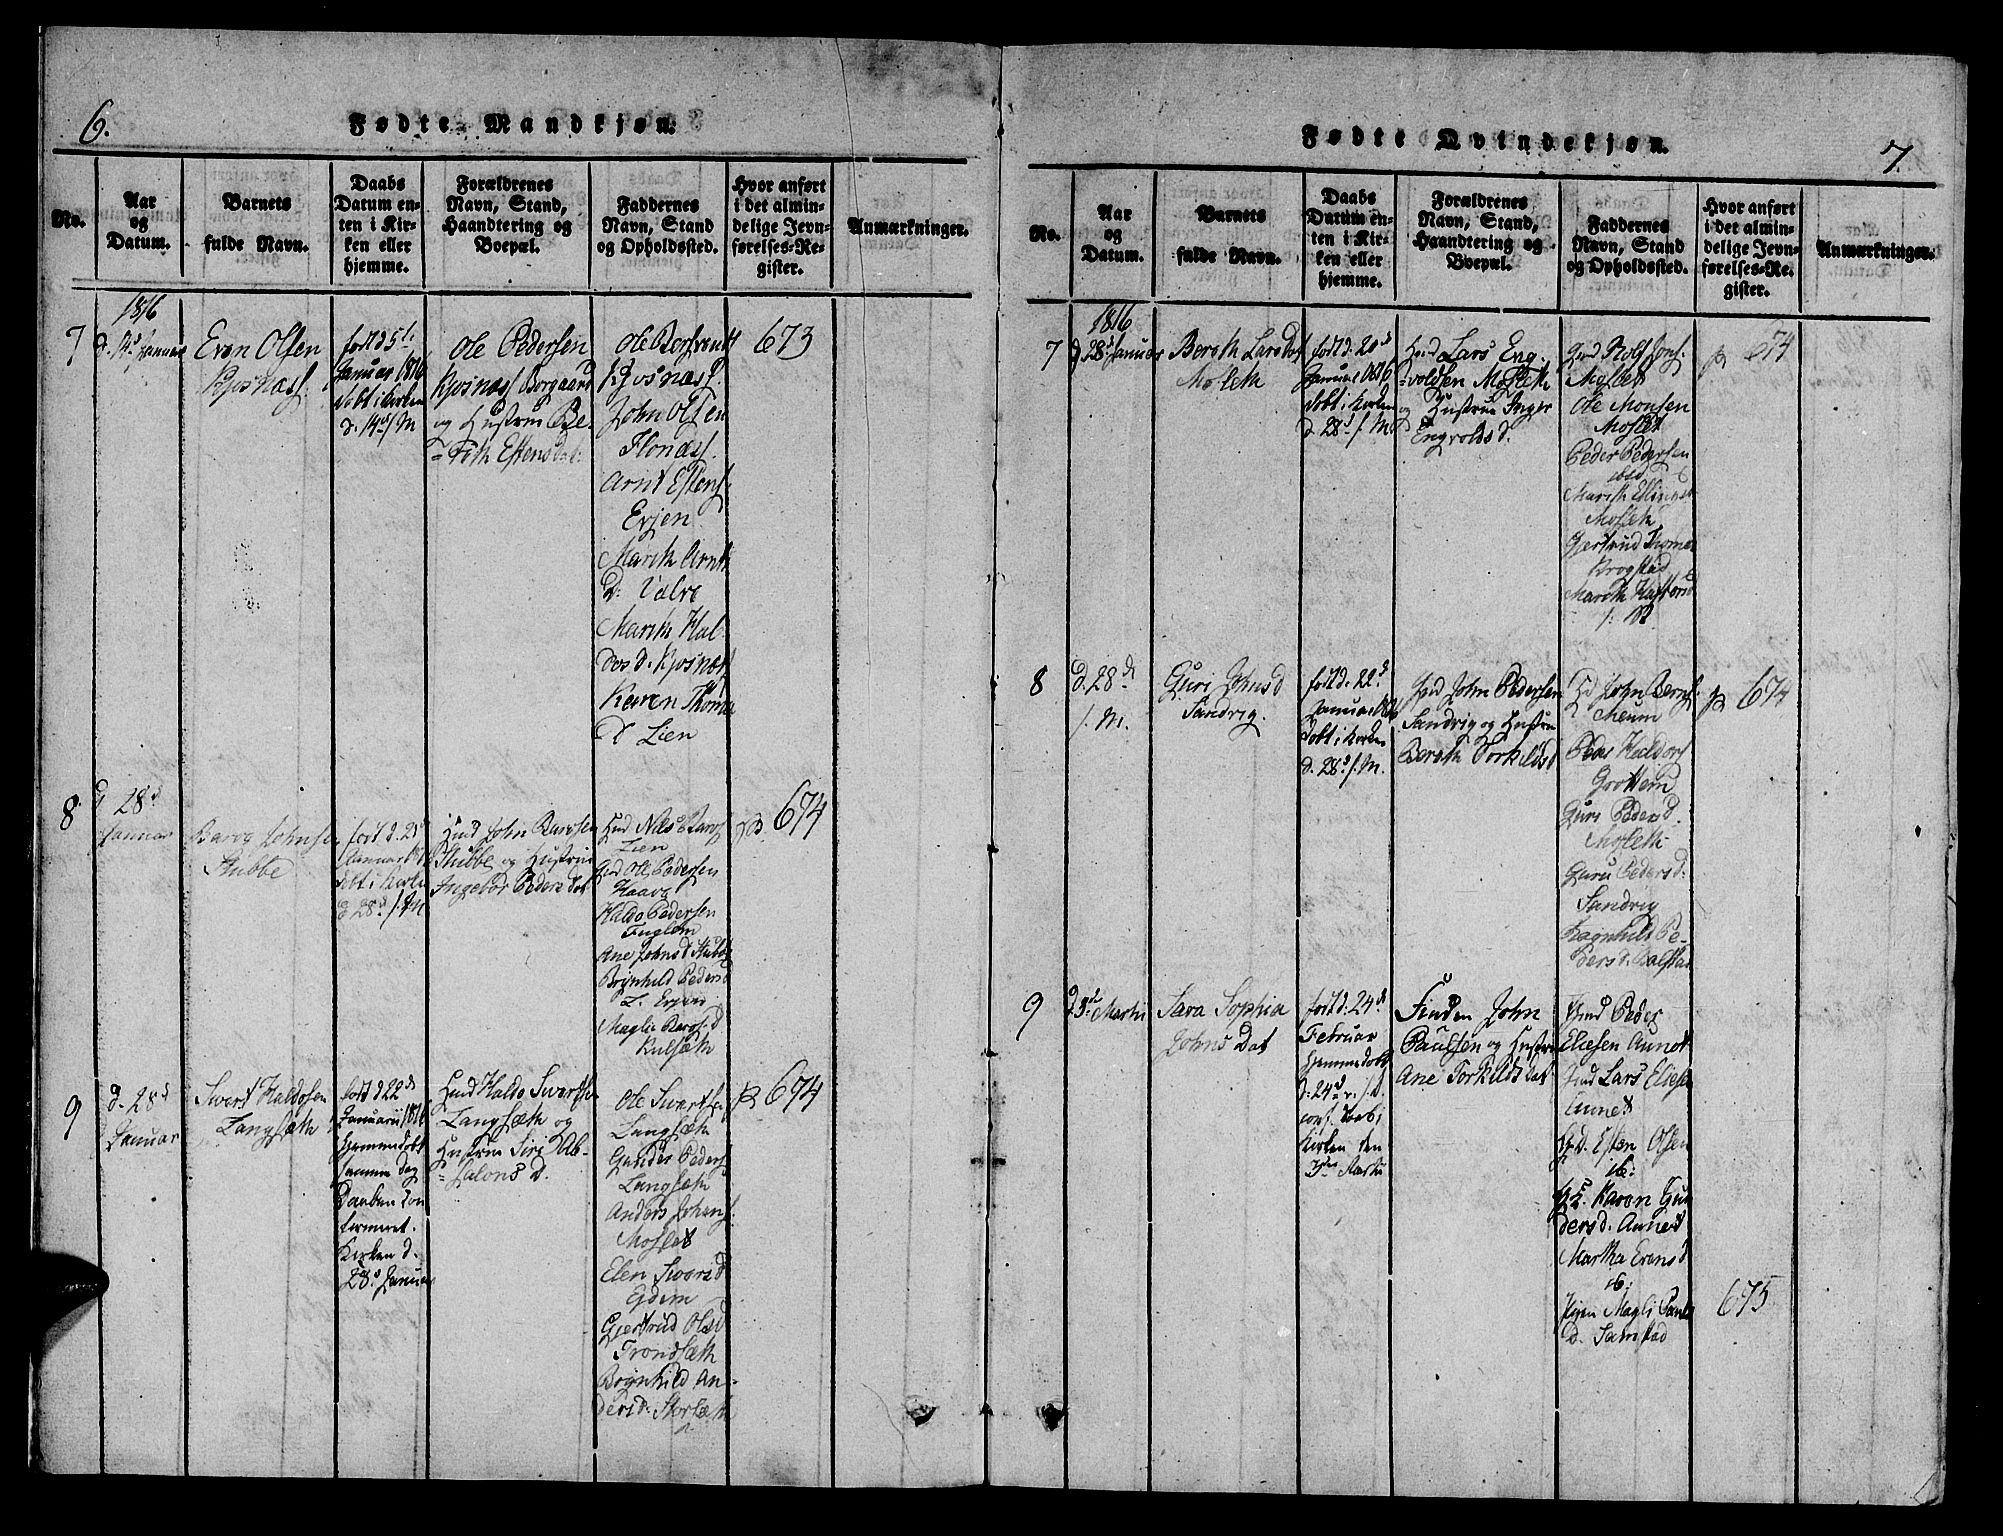 6.
Fødte Mandkjøn.
No.
Aar
og
Datum.
Barnets
fulde Navn.
Daabs
Datum en-
ten i Kir-
ken eller
hjemme.
Forældrenes
Navn, Stand,
Haandtering og
Boepæl.
Faddernes
Navn, Stand
og Opholdssted.
Hvor anført
i det almin-
delige Jevn-
førelses-Re-
gister.
Anmærkninger.
1816
7
d. 14d Januar
Even Olsen
født d 5t
Januar 1816
døbt i Kirken
d. 14d s. M
Ole Pedersen
og Hustrue Be-
rith Estensdat:
John Olsen
Flonæs.
Arnt Estens.
Erjen
Marith Arnt
D: Valve
Marith Hal
dos d.
Karen Thoma
d Lien
673
8
d 28d
Januar
Baroe Johnse
Stubbe
født d. 25
Januar 1816
døbt i Kirke
d 28d s. M
John Barosen
Stubbe og Hustrue
Ingebor Peders dat
Lien
Ole Pedersen
Haave
Haldo Pedersen
Fuglem
Ane Johns d Stubbe
Brynhild Peders d
Magli Baros: d
Kulsæth
674
9
d. 28d
Januar
Sivert Haldosen
Langsæth
født d 22d
Januarii 1816
hjemmedøbt
samme Dag
Daaben con
fermeret.
Kirken d.
28d Januar
Haldo Sivertse
Langsæth og
Hustrue Siri Ab-
salons d.
Ole Sivertse
Langsæth
Gunder Peders
Langsæth
Anders Johans.
Moslet
Elen Siversd
Eidem
Gjertrud Olsd
Trondsæth
Brynhild An-
dersd. Storsæth
674
7.
Fødte Qvindekjøn.
No.
Aar
og
Datum.
Barnets
fulde Navn.
Daabs
Datum en-
ten i Kir-
ken eller
hjemme.
Forældrenes
Navn, Stand,
Haandtering og
Boepæl.
Faddernes
Navn, Stand
og Opholdssted.
Hvor anført
i det almin-
delige Jevn-
førelses-Re-
gister.
Anmærkninger.
1816
7
d 28d Januar
Bereth Larsdat
Mosleth
født d: 20d
Januar 1816
døbt i Kirken
d. 28d s. M.
Lars Eng-
voldsen Mosleth
og Hustrue Inger
Engvolds d.
Rolf Jons.
Moslet
Ole Monsen
Moslet
Peder Pedersen
Marith Ellingsd
Mosleth
Gjertrud Thomæ
Krogstad
674
8
d. 28d
s. M.
Guri Johnsd
Sandvig.
født d. 22d
Januar 1816
døbt i Kirken
d. 28d s. M.
John Pedersen
Sandvig og Hustrue
Bereth Torkildsd
John Bernts.
Aune
Peder Haldors
Grøttem
Guri Peders d.
Mosleth
Guru Peders d:
Sandvig
Ragnhild Pe-
ders d. Balstad
674
9
d 3de Martii
Sara Sophia
Johns Dat
født d: 24de
Februar
hjemmedøbt
d. 24d
conf. Daab i
Kirken den
3die Martii
John
Paulsen og Hustrue
Ane Torkilds dat
Peder
Eliesen Aunet
Lars Eliese
Aunet
Esten Olsen
ib:
Karen Gun
ders d. Aunet
Martha Evens d
ib:
Pigen Magli Pauls
D. Samstad
675